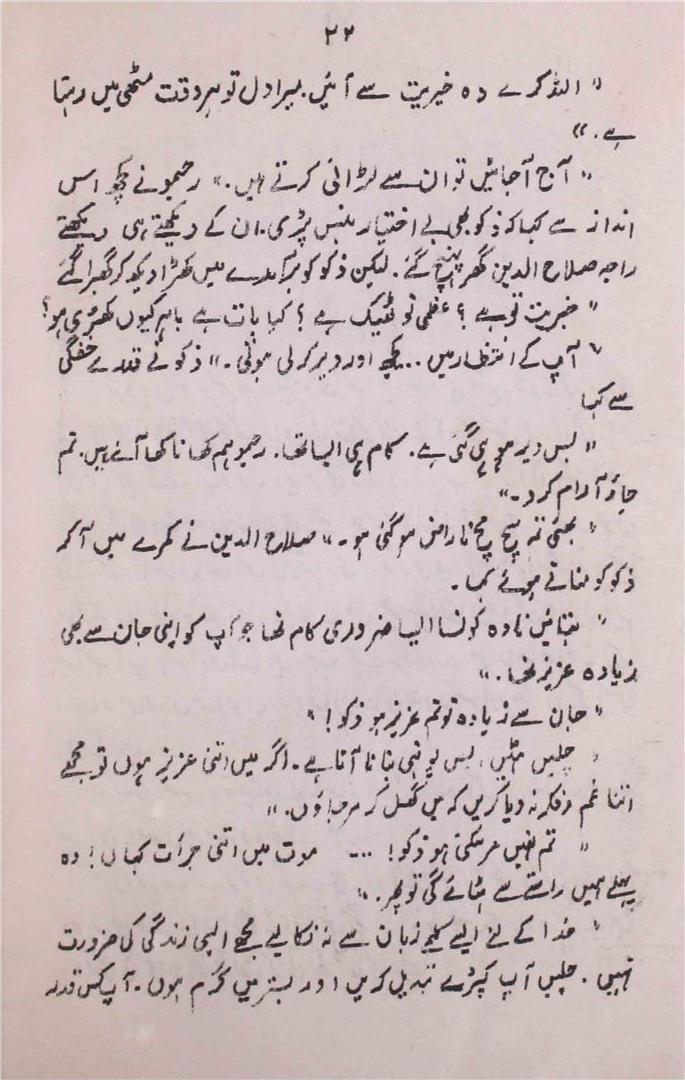 ۲۲
" اللہ کرے وہ خیریت سے آئیں. میرا دل تو ہر وقت مٹھی میں رہتا
ہے. "
" آج آجائیں تو ان سے لڑائی کرتے ہیں. " رحیمو نے کچھ اس
انداز سے کہا کہ ذکو بھی بے اختیار ہنس پڑی. ان کے دیکھتے ہی دیکھتے
راجہ صلاح الدین گھر پہنچ گئے. لیکن ذکو کو برآمدے میں کھڑا دیکھ کر گھبرا گئے
" خیریت تو ہے ؟ عفی تو ٹھیک ہے ؟ کیا بات ہے باہر کیوں کھڑی ہو؟
" آپ کے انتظار میں ... کچھ اور دیر کر لی ہوتی. " ذکو نے قدرے خفگی
سے کہا
" بس دیر ہو ہی گئی ہے. کام ہی ایسا تھا. رحیمو ہم کھانا کھا آئے ہیں. تم
جاؤ آرام کرو. "
" بھئی تم سچ مچ ناراض ہو گئی ہو. " صلاح الدین نے کمرے میں آ کر
ذکو کو مناتے ہوئے کہا.
" بتائیں نا وہ کونسا ایسا ضروری کام تھا جو آپ کو اپنی جان سے بھی
زیادہ عزیز تھا. "
" جان سے زیادہ تو تم عزیز ہو ذکو! "
" چلیں ہٹیں، بس یونہی بنانا آتا ہے. اگر میں اتنی عزیز ہوں تو مجھے
اتنا غم و فکر نہ دیا کریں کہ میں گھل کر مرجاؤں. "
" تم نہیں مرسکتی ہو ذکو! ... موت میں اتنی جرأت کہاں! وہ
پہلے ہمیں راستے سے ہٹائے گی تو پھر. "
" خدا کے لئے ایسے کلمے زبان سے نہ نکالیے مجھے ایسی زندگی کی ضرورت
نہیں. چلیں آپ کپڑے تبدیل کریں اور بستر میں گرم ہوں. آپ کس قدر